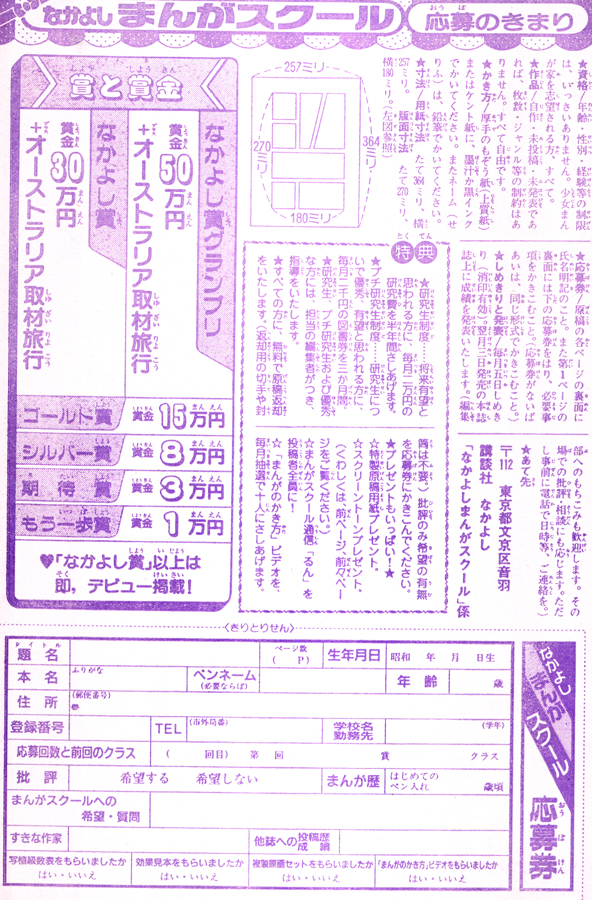 なかよしまんがスクール 応募のきまり
★資格/年齢・性別・経験等の制限
は、いっさいありません。少女まん
が家を志望される方、すべて。
★作品/自作・未投稿・未発表であ
れば、枚数・ジャンル等の制約はあ
りません。すべて自由です。
★かき方/厚手のもぞう紙(上質紙)
またはケント紙に、墨汁か黒インク
でかいてください。またネーム(せ
りふ)は、鉛筆でかいてください。
★寸法/用紙寸法 たて364ミリ、横
257ミリ。 版面寸法 たて270ミリ、
横180ミリ。(左図参照)
257ミリ
270ミリ
364ミリ
180ミリ
賞と賞金
なかよし賞グランプリ
賞金50万円
+オーストラリア取材旅行
なかよし賞
賞金30万円
+オーストラリア取材旅行
ゴールド賞 賞金15万円
シルバー賞 賞金8万円
期待賞 賞金3万円
もう一歩賞 賞金1万円
♥「なかよし賞」以上は
即、デビュー掲載!
★応募券/原稿の各ページの裏面に
氏名明記のこと。また第一ページの
裏面には下の応募券をはり、必要事
項をかきこむこと。(応募券がないば
あいは、同じ形式でかきこむこと。)
★しめきりと発表/毎月五日しめき
り(消印有効)翌月三日発売の本誌
誌上に成績を発表いたします。(編集
部へのもちこみも歓迎します。その
場での批評・相談にも応じます。ただ
し事前に電話で日時等、ご連絡を。)
★あて先
〒112 東京都文京区音羽
講談社 なかよし
「なかよしまんがスクール」係
特典
★研究生制度……将来有望と
思われる方に、毎月二万円の
研究費を半年間さしあげます。
★プチ研究生制度……研究生につ
いで優秀、有望と思われる方に、
毎月二千円の図書券を三か月間。
★研究生、プチ研究生および優秀
な方には、担当の編集者がつき、
指導をいたします。
★すべての方に、無料で原稿返却
をいたします。(返却用の切手や封
筒は不要)批評のみ希望の有無
を応募券にかきこんでください。
★プレゼントもいっぱい!★
☆特製原稿用紙プレゼント。
☆スクリーントーンプレゼント。
(くわしくは前ページ、前々ペー
ジをご覧ください。)
☆まんがスクール通信「るん」を
投稿者全員に!
☆「まんがのかき方」ビデオを、
毎月抽選で十人にさしあげます。
〈きりとりせん〉
題名 ページ数 ( P) 生年月日 昭和 年 月 日生
本名 ふりがな ペンネーム (必要ならば) 年齢 歳
住所 (郵便番号)
登録番号 TEL (市外局番) 学校名 勤務先 (学年)
応募回数と前回のクラス ( 回目) 第 回 賞 クラス
批評 希望する 希望しない まんが歴 はじめてのペン入れ 歳頃
まんがスクールへの希望・質問
すきな作家 他誌への投稿歴 成績
写植級数表をもらいましたか はい・いいえ
効果見本をもらいましたか はい・いいえ
複製原画セットをもらいましたか はい・いいえ
「まんがのかき方」ビデオをもらいましたか はい・いいえ
なかよしまんがスクール
応募券